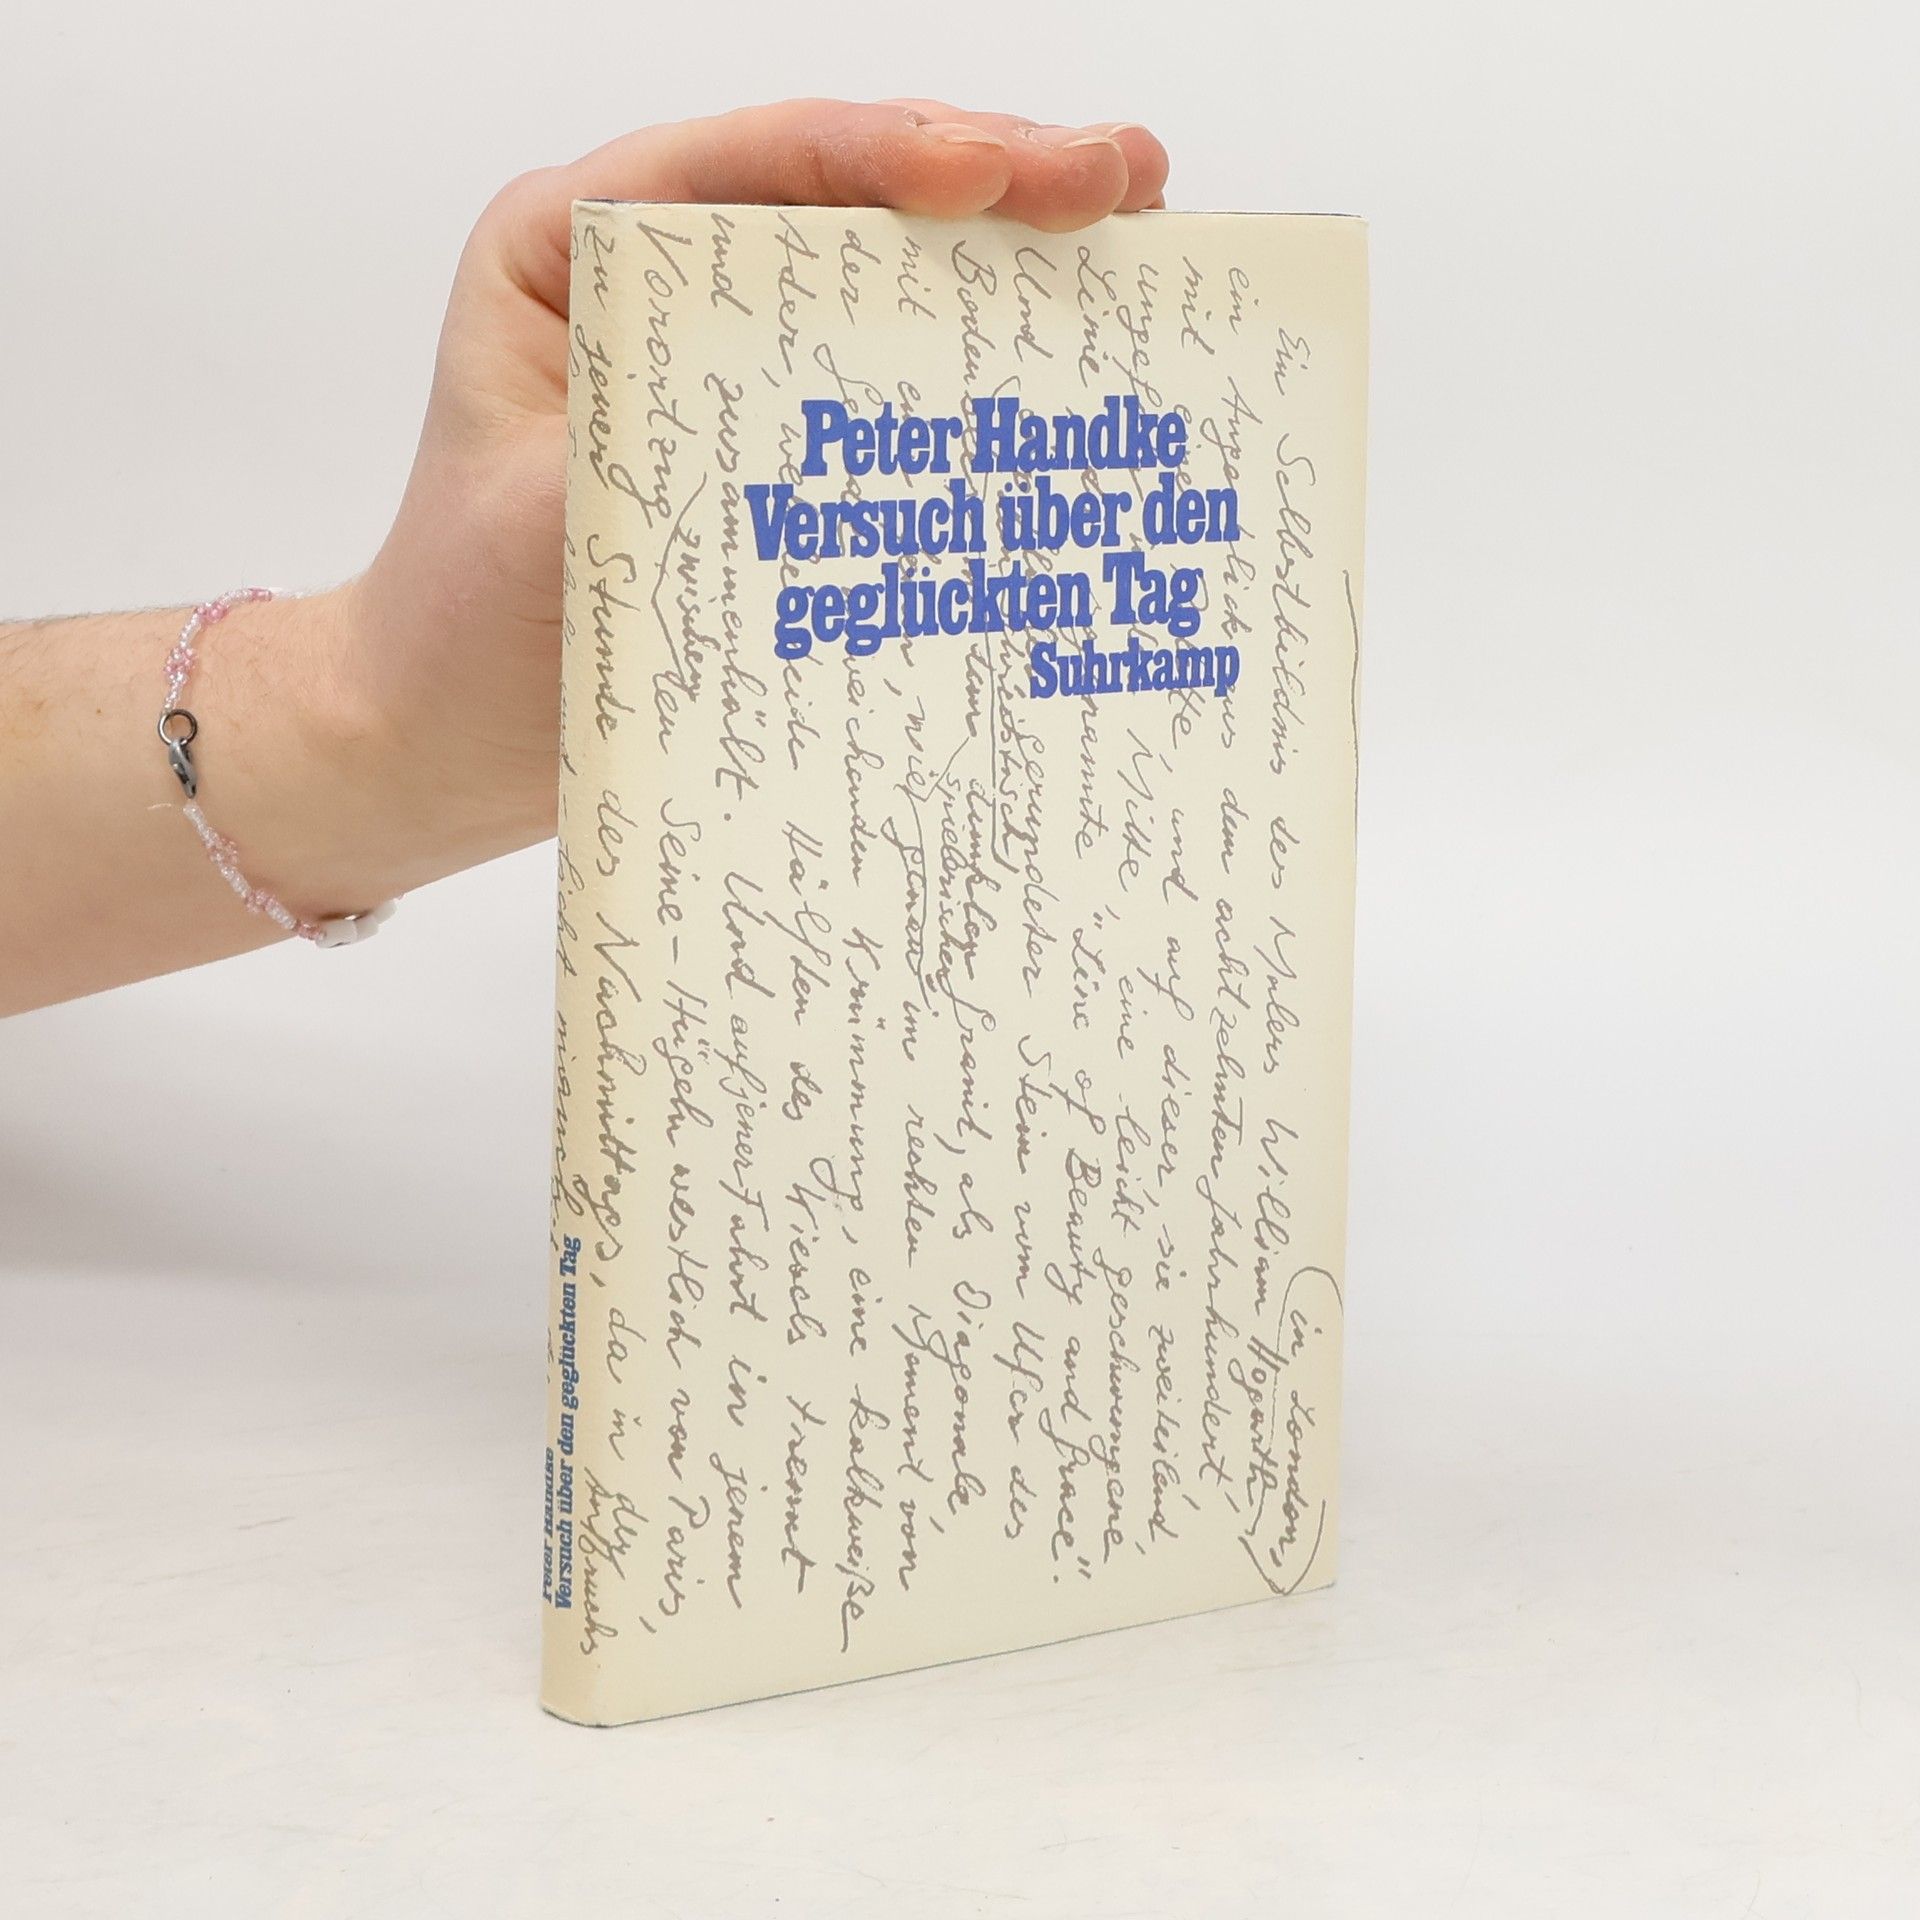 Peter Handke
Versuch über den
geglückten Tag
Suhrkamp
Ein Selbstbildnis des Malers William Hogarth, in London,
ein Augenblick aus dem achtzehnten Jahrhundert,
mit einer Palette, und auf dieser, sie zweiteilend,
ungefähr in der Mitte, eine leicht geschwungene
Linie, die sogenannte "Line of Beauty and Grace".
Und gerundeter Stein vom Ufer des
Bodensees dunklen Granit, als Diagonale,
mit einer spielerischen, genau im rechten Moment von
der Geraden weichenden Krümmung, eine kalkweiße
Ader, welche beide Hälften des Kiesels trennt
und zusammenhält. Und auf jener Fahrt in jenem
Vorortzug zwischen den Seine-Hügeln westlich von Paris,
zu jener Stunde des Nachmittags, da in der
Peter Handke
Versuch über den geglückten Tag